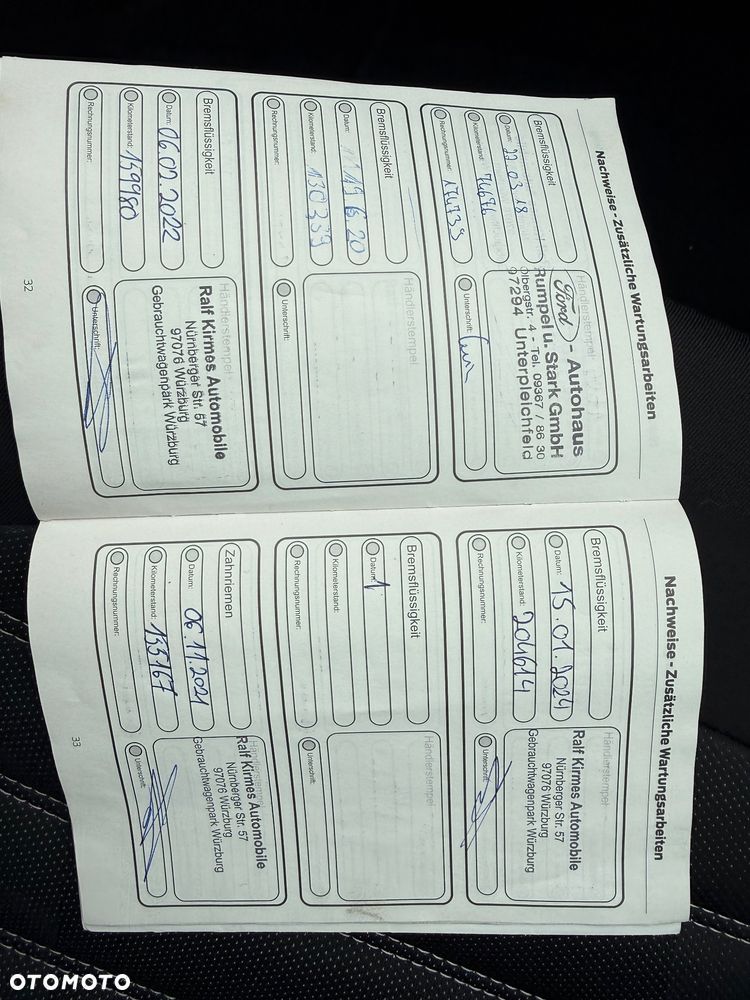 Nachweise - Zusätzliche Wartungsarbeiten
Bremsflüssigkeit
Datum: 22 03 18
Kilometerstand: 74676
Rechnungsnummer: 174739
Händlerstempel
Ford - Autohaus
Rumpel u. Stark GmbH
Olbergstr. 4 - Tel. 09367 / 86 30
97294 Unterpleichfeld
Unterschrift:
Bremsflüssigkeit
Datum: 20
Kilometerstand: 130339
Rechnungsnummer:
Händlerstempel
Unterschrift:
Bremsflüssigkeit
Datum: 06.02.2022
Kilometerstand: 159980
Rechnungsnummer:
Händlerstempel
Ralf Kirmes Automobile
Nürnberger Str. 57
97076 Würzburg
Gebrauchtwagenpark Würzburg
Unterschrift:
32
Nachweise - Zusätzliche Wartungsarbeiten
Bremsflüssigkeit
Datum: 15.01.2024
Kilometerstand: 204614
Rechnungsnummer:
Händlerstempel
Ralf Kirmes Automobile
Nürnberger Str. 57
97076 Würzburg
Gebrauchtwagenpark Würzburg
Unterschrift:
Bremsflüssigkeit
Datum: 1
Kilometerstand:
Rechnungsnummer:
Händlerstempel
Unterschrift:
Zahnriemen
Datum: 06.11.2021
Kilometerstand: 155167
Rechnungsnummer:
Händlerstempel
Ralf Kirmes Automobile
Nürnberger Str. 57
97076 Würzburg
Gebrauchtwagenpark Würzburg
Unterschrift:
33
OTOMOTO